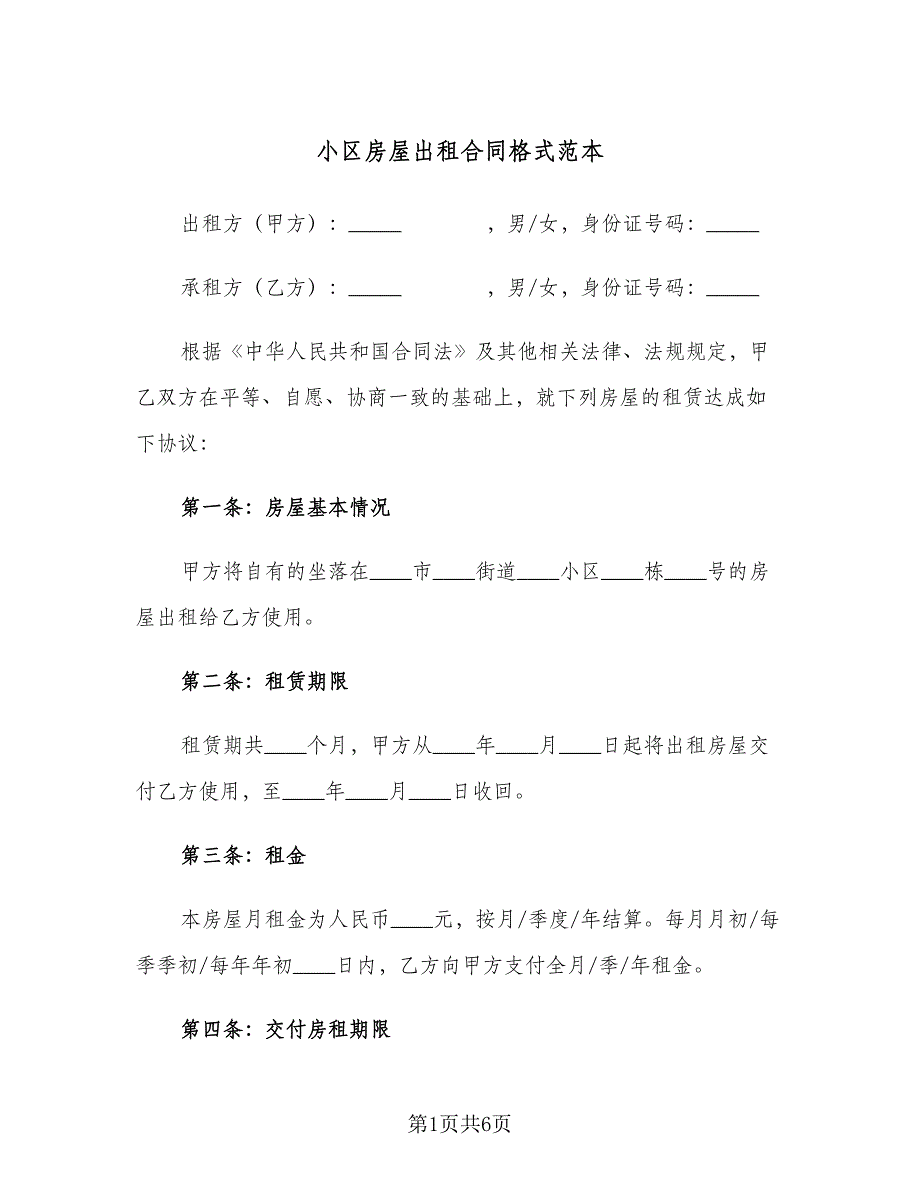 小区房屋出租合同格式范本
出租方（甲方）：_____ ，男/女，身份证号码：_____
承租方（乙方）：_____ ，男/女，身份证号码：_____
根据《中华人民共和国合同法》及其他相关法律、法规规定，甲
乙双方在平等、自愿、协商一致的基础上，就下列房屋的租赁达成如
下协议：
第一条：房屋基本情况
甲方将自有的坐落在____市____街道____小区____栋____号的房
屋出租给乙方使用。
第二条：租赁期限
租赁期共____个月，甲方从____年____月____日起将出租房屋交
付乙方使用，至____年____月____日收回。
第三条：租金
本房屋月租金为人民币____元，按月/季度/年结算。每月月初/每
季季初/每年年初____日内，乙方向甲方支付全月/季/年租金。
第四条：交付房租期限
第1页共6页